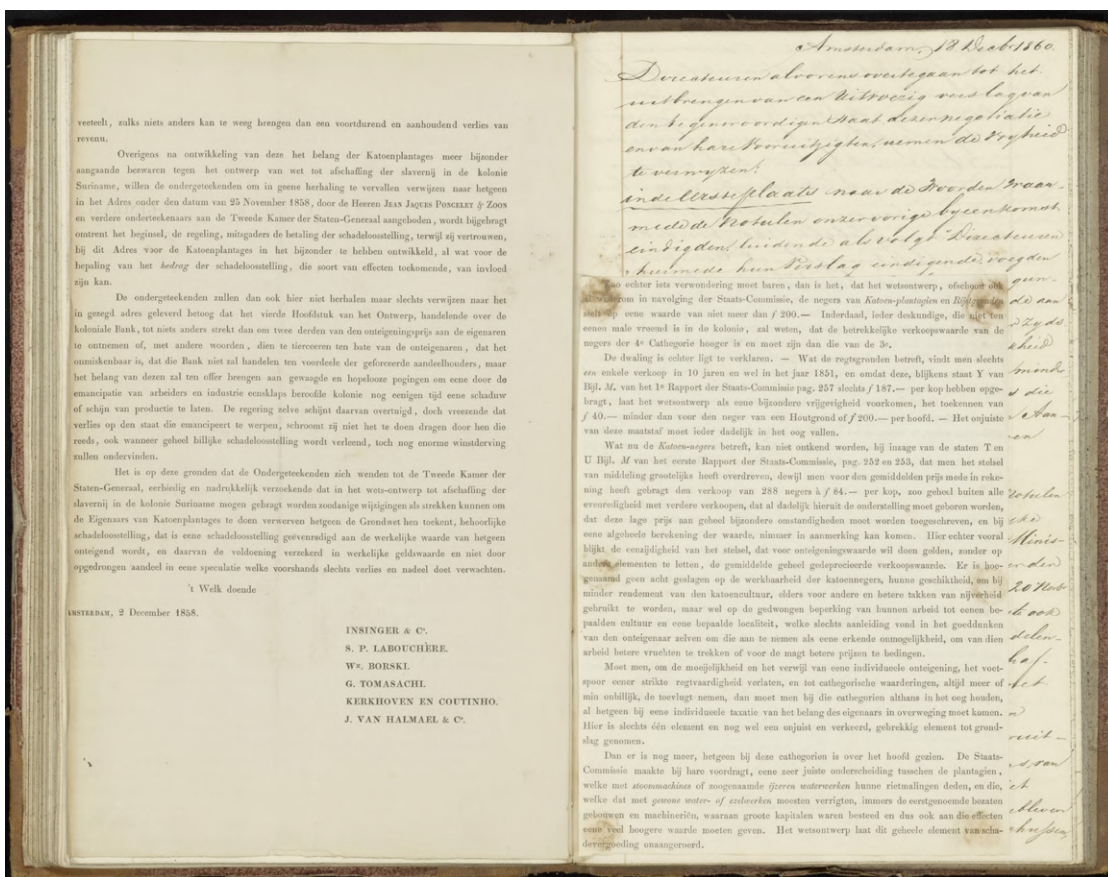 veeteelt, zulks niets anders kan te weeg brengen dan een voortdurend en aanhoudend verlies van
revenu.
Overigens na ontwikkeling van deze het belang der Katoenplantages meer bijzonder
aangaande bezwaren tegen het ontwerp van wet tot afschaffing der slavernij in de kolonie
Suriname, willen de ondergeteekenden om in geene herhaling te vervallen verwijzen naar hetgeen
in het Adres onder den datum van 25 November 1858, door de Heeren JEAN JAQUES PONCELET & ZOON
en verdere onderteekenaars aan de Tweede Kamer der Staten-Generaal aangeboden, wordt bijgebragt
omtrent het beginsel, de regeling, mitsgaders de betaling der schadeloosstelling, terwijl zij vertrouwen,
bij dit Adres voor de Katoenplantages in het bijzonder te hebben ontwikkeld, al wat voor de
bepaling van het bedrag der schadeloosstelling, die soort van effecten toekomende, van invloed
zijn kan.
De ondergeteekenden zullen dan ook hier niet herhalen maar slechts verwijzen naar het
in gezegd adres geleverd betoog dat het vierde Hoofdstuk van het Ontwerp, handelende over de
koloniale Bank, tot niets anders strekt dan om twee derden van den onteigeningsprijs aan de eigenaren
te ontnemen of, met andere woorden, dien te tierceeren ten bate van de onteigenaren, dat het
onmiskenbaar is, dat die Bank niet zal handelen ten voordeele der geforceerde aandeelhouders, maar
het belang van dezen zal ten offer brengen aan gewaagde en hopelooze pogingen om eene door de
emancipatie van arbeiders en industrie eensklaps beroofde kolonie nog eenigen tijd eene schaduw
of schijn van productie te laten. De regering zelve schijnt daarvan overtuigd, doch vreezende dat
verlies op den staat die emancipeert te werpen, schroomt zij niet het te doen dragen door hen die
reeds, ook wanneer geheel billijke schadeloosstelling wordt verleend, toch nog enorme winstderving
zullen ondervinden.
Het is op deze gronden dat de Ondergeteekenden zich wenden tot de Tweede Kamer der
Staten-Generaal, eerbiedig en nadrukkelijk verzoekende dat in het wets-ontwerp tot afschaffing der
slavernij in de kolonie Suriname mogen gebragt worden zoodanige wijzigingen als strekken kunnen om
de Eigenaars van Katoenplantages te doen verwerven hetgeen de Grondwet hen toekent, behoorlijke
schadeloosstelling, dat is eene schadeloosstelling geëvenredigd aan de werkelijke waarde van hetgeen
onteigend wordt, en daarvan de voldoening verzekerd in werkelijke geldswaarde en niet door
opgedrongen aandeel in eene speculatie welke voorshands slechts verlies en nadeel doet verwachten.
't Welk doende
AMSTERDAM, 2 December 1858.
INSINGER & Co.
S. P. LABOUCHÈRE.
Wm. BORSKI.
G. TOMASACHI.
KERKHOVEN EN COUTINHO.
J. VAN HALMAEL & Co.
Amsterdam, 18 Decb. 1860.
Directeuren alvorens overtegaan tot het
uitbrengen van een Uitvoerig verslag van
den tegenwoordigen Staat dezer negotiatie
en van hare Vooruitzigten, nemen de Vryheid
te verwyzen:
in de Eerste plaats naar de Woorden Waar-
mede de Notulen onzer vorige byeenkomst
eindigden, luidende als volgt "Directeuren
hiermede hun Verslag eindigende voegden
Zoo echter iets verwondering moet baren, dan is het, dat het wetsontwerp, ofschoon ook
alweder om in navolging der Staats-Commissie, de negers van Katoen-plantagien en Rijstgronden
stelt op eene waarde van niet meer dan f 200.— Inderdaad, ieder deskundige, die niet ten
eenen male vreemd is in de kolonie, zal weten, dat de betrekkelijke verkoopswaarde van de
negers der 4e Cathegorie hooger is en moet zijn dan die van de 3e.
De dwaling is echter ligt te verklaren. — Wat de regtsgronden betreft, vindt men slechts
een enkele verkoop in 10 jaren en wel in het jaar 1851, en omdat deze, blijkens staat Y van
Bijl. M. van het 1e Rapport der Staats-Commissie pag. 257 slechts f 187.— per kop hebben opge-
bragt, laat het wetsontwerp als eene bijzondere vrijgevigheid voorkomen, het toekennen van
f 40.— minder dan voor den neger van een Houtgrond of f 200.— per hoofd. — Het onjuiste
van deze maatstaf moet ieder dadelijk in het oog vallen.
Wat nu de Katoen-negers betreft, kan niet ontkend worden, bij inzage van de staten T en
U Bijl. M van het eerste Rapport der Staats-Commissie, pag. 252 en 253, dat men het stelsel
van middeling grootelijks heeft overdreven, dewijl men voor den gemiddelden prijs mede in reke-
ning heeft gebragt den verkoop van 288 negers à f 84.— per kop, zoo geheel buiten alle
evenredigheid met verdere verkoopen, dat al dadelijk hieruit de onderstelling moet geboren worden,
dat deze lage prijs aan geheel bijzondere omstandigheden moet worden toegeschreven, en bij
eene algeheele berekening der waarde, nimmer in aanmerking kan komen. Hier echter vooral
blijkt de eenzijdigheid van het stelsel, dat voor onteigeningswaarde wil doen gelden, zonder op
andere elementen te letten, de gemiddelde geheel gedeprecieerde verkoopswaarde. Er is hoe-
genaamd geen acht geslagen op de werkbaarheid der katoennegers, hunne geschiktheid, om bij
minder rendement van den katoencultuur, elders voor andere en betere takken van nijverheid
gebruikt te worden, maar wel op de gedwongen beperking van hunnen arbeid tot eenen be-
paalden cultuur en eene bepaalde localiteit, welke slechts aanleiding vond in het goeddunken
van den onteigenaar zelven om die aan te nemen als eene erkende onmogelijkheid, om van dien
arbeid betere vruchten te trekken of voor de magt betere prijzen te bedingen.
Moet men, om de moeijelijkheid en het verwijl van eene individueele onteigening, het voet-
spoor eener strikte regtvaardigheid verlaten, en tot cathegorische waarderingen, altijd meer of
min onbillijk, de toevlugt nemen, dan moet men bij die cathegorien althans in het oog houden,
al hetgeen bij eene individueele taxatie van het belang des eigenaars in overweging moet komen.
Hier is slechts één element en nog wel een onjuist en verkeerd, gebrekkig element tot grond-
slag genomen.
Dan er is nog meer, hetgeen bij deze cathegorien is over het hoofd gezien. De Staats-
Commissie maakte bij hare voordragt, eene zeer juiste onderscheiding tusschen de plantagien,
welke met stoommachines of zoogenaamde ijzeren waterwerken hunne rietmalingen deden, en die,
welke dat met gewone water- of ezelwerken moesten verrigten, immers de eerstgenoemde bezaten
gebouwen en machineriën, waaraan groote kapitalen waren besteed en dus ook aan die effecten
eene veel hoogere waarde moeten geven. Het wetsontwerp laat dit geheele element van scha-
devergoeding onaangeroerd.
de aan
kheid
minder
s die
en
Notulen
Minis-
20 Novb.
te ook
deelen-
het
ruit-
s, van
bleven